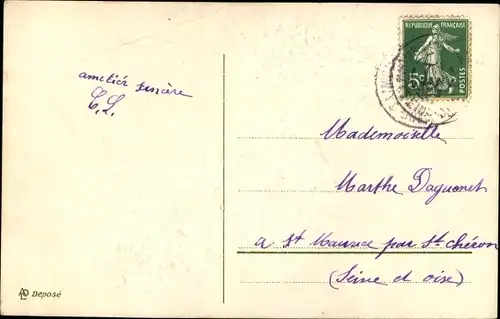 amitiér sincère
C. L.
REPUBLIQUE FRANÇAISE
5c
POSTES
Mademoiselle
Marthe Daguenet
a St Maurice par St chéron
(Seine et oise)
Deposé